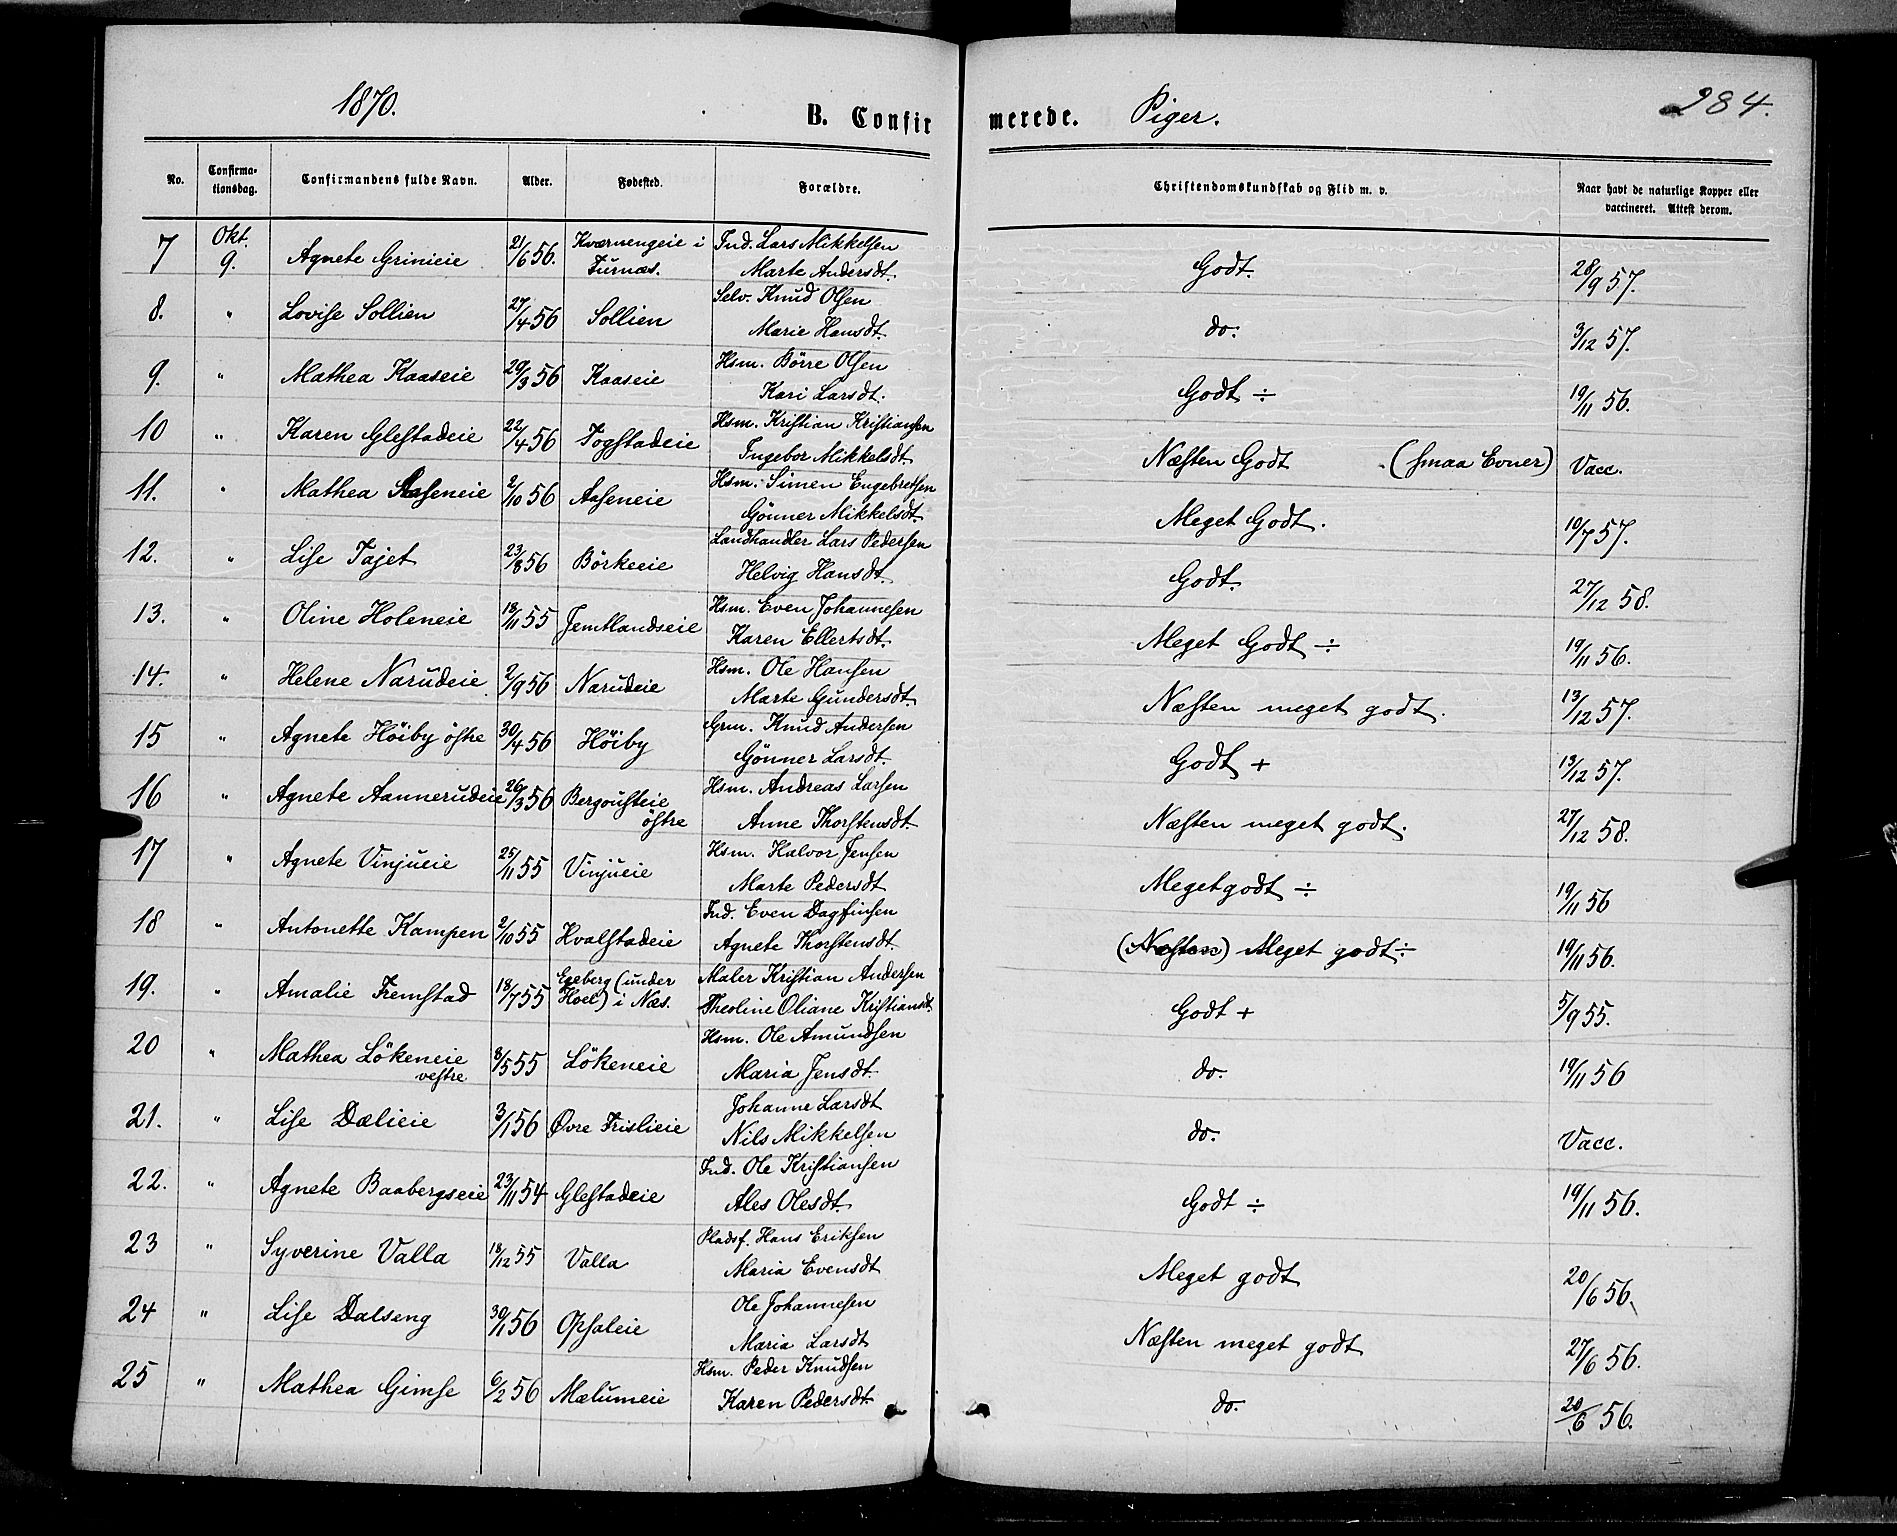 1870. B. Confirmerede. Piger. 284.
No. Confirmationsdag. Confirmandens fulde Navn. Alder. Fødested. Forældre. Christendomskundskab og Flid m. v. Naar havt de naturlige Kopper eller vaccineret. Attest derom.
7 Okt. 9. Agnete Grinieie 21/6 56. Kværnengeie i Furnæs. Ind. Lars Mikkelsen Godt. 28/9 57.
Marte Andersdt.
8. " Lovise Sollien 27/4 56 Sollien Selv. Knud Olsen do. 3/12 57.
Marie Hansdt.
9. " Mathea Kaaseie 29/3 56 Kaaseie Hsm. Börre Olsen Godt ÷ 19/11 56.
Kari Larsdt.
10 " Karen Glestadeie 22/4 56 Togstadeie Hsm. Kristian Kristiansen Næsten Godt (smaa Evner) Vacc.
Ingebor Mikkelsdt.
11. " Mathea Aaseneie 2/10 56 Aaseneie Hsm. Simen Engebretsen Meget Godt. 10/7 57.
Gönner Mikkelsdt.
12. " Lise Tajet 23/8 56 Börkeeie Landhandler Lars Pedersen Godt. 27/12 58.
Helvig Hansdt.
13. " Oline Holeneie 18/11 55 Jemtlandseie Hsm. Even Johannesen Meget Godt ÷ 19/11 56.
Karen Ellertsdt.
14. " Helene Narudeie 2/9 56 Narudeie Hsm. Ole Hansen Næsten meget godt. 13/12 57.
Marte Gundersdt.
15 " Agnete Höiby östre 30/4 56 Höiby Grm. Knud Andersen Godt + 13/12 57.
Gönner Larsdt.
16 " Agnete Aannerudeie 26/3 56 Bergousteie östre Hsm. Andreas Larsen Næsten meget godt. 27/12 58.
Anne Thorstensdt.
17 " Agnete Vinjueie 25/11 55 Vinjueie Hsm. Halvor Jensen Meget godt ÷ 19/11 56
Marte Pedersdt
18 " Antonette Kampen 2/10 55 Hvalstadeie Ind. Even Dagfinsen (Næsten) Meget godt ÷ 19/11 56.
Agnete Thorstensdt.
19. " Amalie Fremstad 18/7 55 Egeberg (under Hoel) i Næs. Maler Kristian Andersen Godt + 5/9 55.
Theoline Oliane Kristiansdt.
20 " Mathea Lökeneie vestre 8/5 55 Lökeneie Hsm. Ole Amundsen do. 19/11 56
Maria Jensdt.
21. " Lise Dælieie 3/1 56 Øvre Frislieie Johanne Larsdt do. Vacc.
Nils Mikkelsen
22. " Agnete Baabergseie 23/11 54 Glestadeie Ind. Ole Kristiansen Godt ÷ 19/11 56.
Ales Olesdt.
23 " Syverine Valla 18/12 55 Valla Pladsf. Hans Eriksen Meget godt 20/6 56.
Maria Evensdt
24 " Lise Dalseng 30/1 56 Opsaleie Ole Johannesen Næsten meget godt 27/6 56.
Maria Larsdt
25 " Mathea Gimse 6/2 56 Mælumeie Hsm. Peder Knudsen do. 20/6 56.
Karen Pedersdt